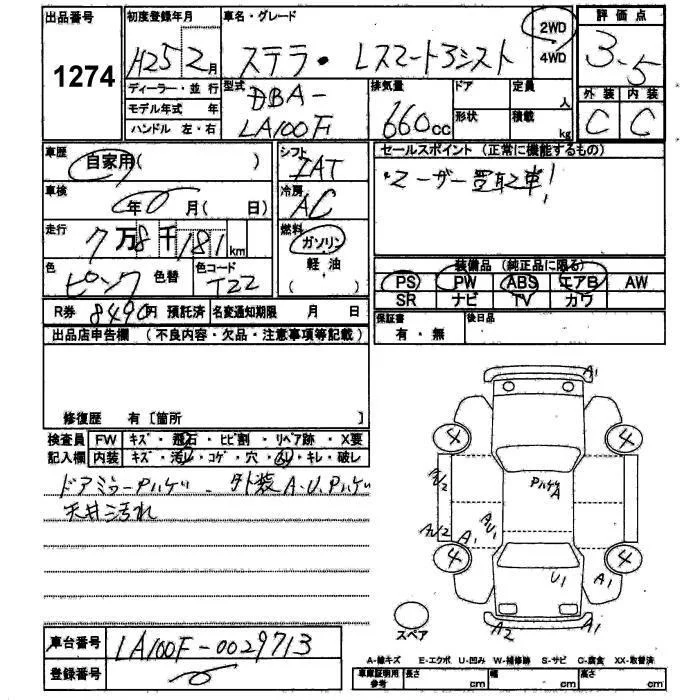 出品番号 1274
初度登録年月 H25 2月
車名・グレード ステラ・Lスマートアシスト
2WD
4WD
評価点 3.5
ディーラー・並行
モデル年式 年
ハンドル 左・右
型式 DBA-
LA100F
排気量 660cc
ドア
形状
定員 人
積載 kg
外装 内装
C C
車歴 自家用( )
シフト IAT
車検 年 月( 日)
冷房 AC
走行 7万8千181km
燃料 ガソリン
軽・油
( )
色 ピンク 色替 色コード T22
R券 8490円 預託済 名変通知期限 月 日
セールスポイント (正常に機能するもの)
・ユーザー買取車!
装備品 (純正品に限る)
PS PW ABS エアB AW
SR ナビ TV カワ
保証書 有・無
後日品
出品店申告欄 (不良内容・欠品・注意事項等記載)
修復歴 有 [箇所 ]
検査員 FW キズ・飛石・ヒビ割・リペア跡・X要
記入欄 内装 キズ・汚レ・コゲ・穴・ ・キレ・破レ
ドアミラーPハゲ 外装A.U.Pハゲ
天井汚れ
A1
4 4
A/U2
Pハゲ
A
A/U2 A1 A/U1
4 4
U1 A1
A2 A1
スペア
A-線キズ E-エクボ U-凹み W-補修跡 S-サビ C-腐食 XX-取替済
車台番号 LA100F-0029713
登録番号
車庫証明用
参考
長さ cm 幅 cm 高さ cm